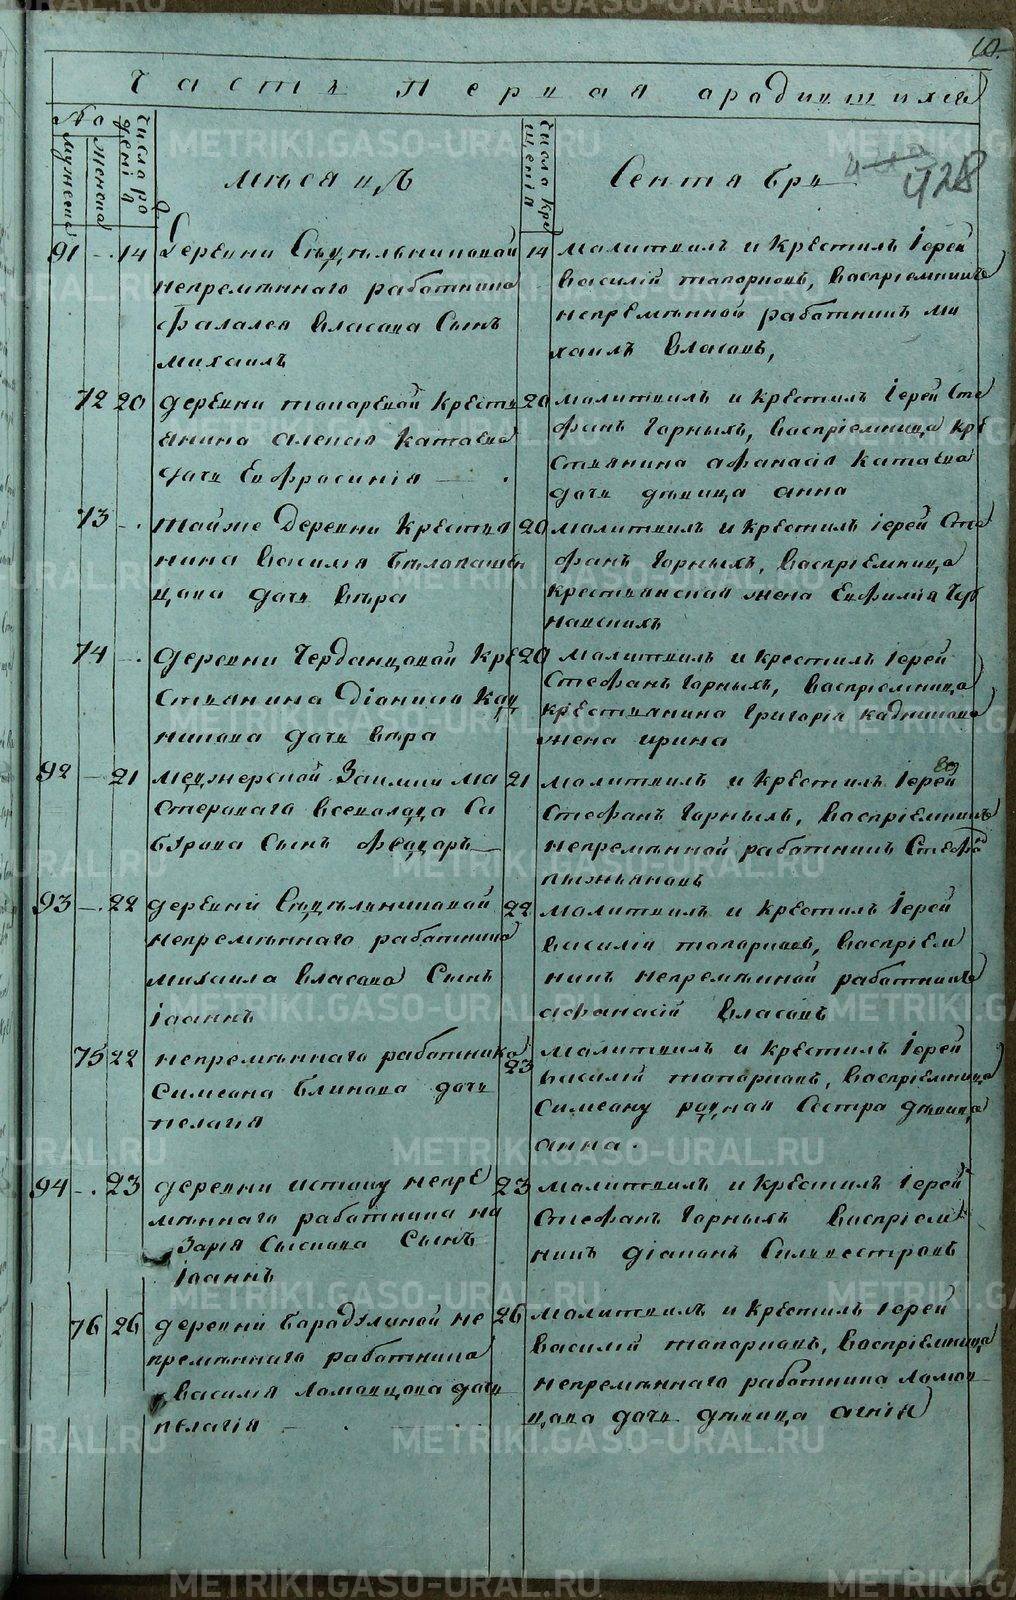 60.
Часть первая арадившихся
№
мужеска
женска
Числа ро
жденія
Мѣсяцъ
Числа кре
щенія
Сентябрь
428
91 14 Деревни Сѣдѣльниковой
непремѣннаго работника
Фалалея Власова Сынъ
Михаилъ
14 малитвилъ и Крестилъ Іерей
Василій тапорковъ, Васпріемникъ
непремѣнной работникъ Ми
хаилъ Власовъ,
72 20 деревни тапаревой Кресть
янина Алексія Катаева
дочь Евфросинія
20 малитвилъ и крестилъ Іерей Сте
фанъ Горныхъ, Васпріемница Кре
стьянина афанасія Катаева
дочь дѣвица анна
73 тойже Деревни Крестья
нина Василія Бѣлопашин
цова дочь Вѣра
20 малитвилъ и крестилъ іерей Сте
фанъ Горныхъ, Васпріемница
крестьянская жена Евфимія Чер
навскихъ
74 деревни Черданцовой Кре
стьянина Діонисія Кад
никова дочь Вѣра
20 малитвилъ и крестилъ Іерей
Стефанъ Горныхъ, Васпріемница
крестьянина Григорія кадникова
жена ирина
92 21 Заимки ма
стероваго Всеволода Са
бурова Сынъ Феодоръ
21 малитвилъ и крестилъ Іерей
Стефанъ Горныхъ, Васпріемникъ
непремѣнной работникъ Стефа
пыжьяновъ
93 22 деревни Сѣдѣльниковой
непремѣннаго работника
михаила Власова Сынъ
іоаннъ
22 малитвилъ и крестилъ Іерей
Василій тапорковъ, Васпріем
никъ непремѣнной работникъ
афанасій Власовъ
75 22 непремѣннаго работника
Симеона Блинова дочь
пелагія
23 малитвилъ и крестилъ Іерей
Василій тапорковъ, Васпріемница
Симеону родная Сестра дѣвица
анна.
94 23 деревни истоку непре
мѣннаго работника на
зарія Сыскова Сынъ
іоаннъ
23 малитвилъ и крестилъ Іерей
Стефанъ Горныхъ Васпріем
никъ діаконъ Сильвестровъ
76 26 деревни Барадулиной не
премѣннаго работника
Василія Ломовцова дочь
пелагія
26 малитвилъ и крестилъ Іерей
Василій тапорковъ, Васпріемница
непремѣннаго работника ломов
цова дочь дѣвица агнія
METRIKI.GASO-URAL.RU